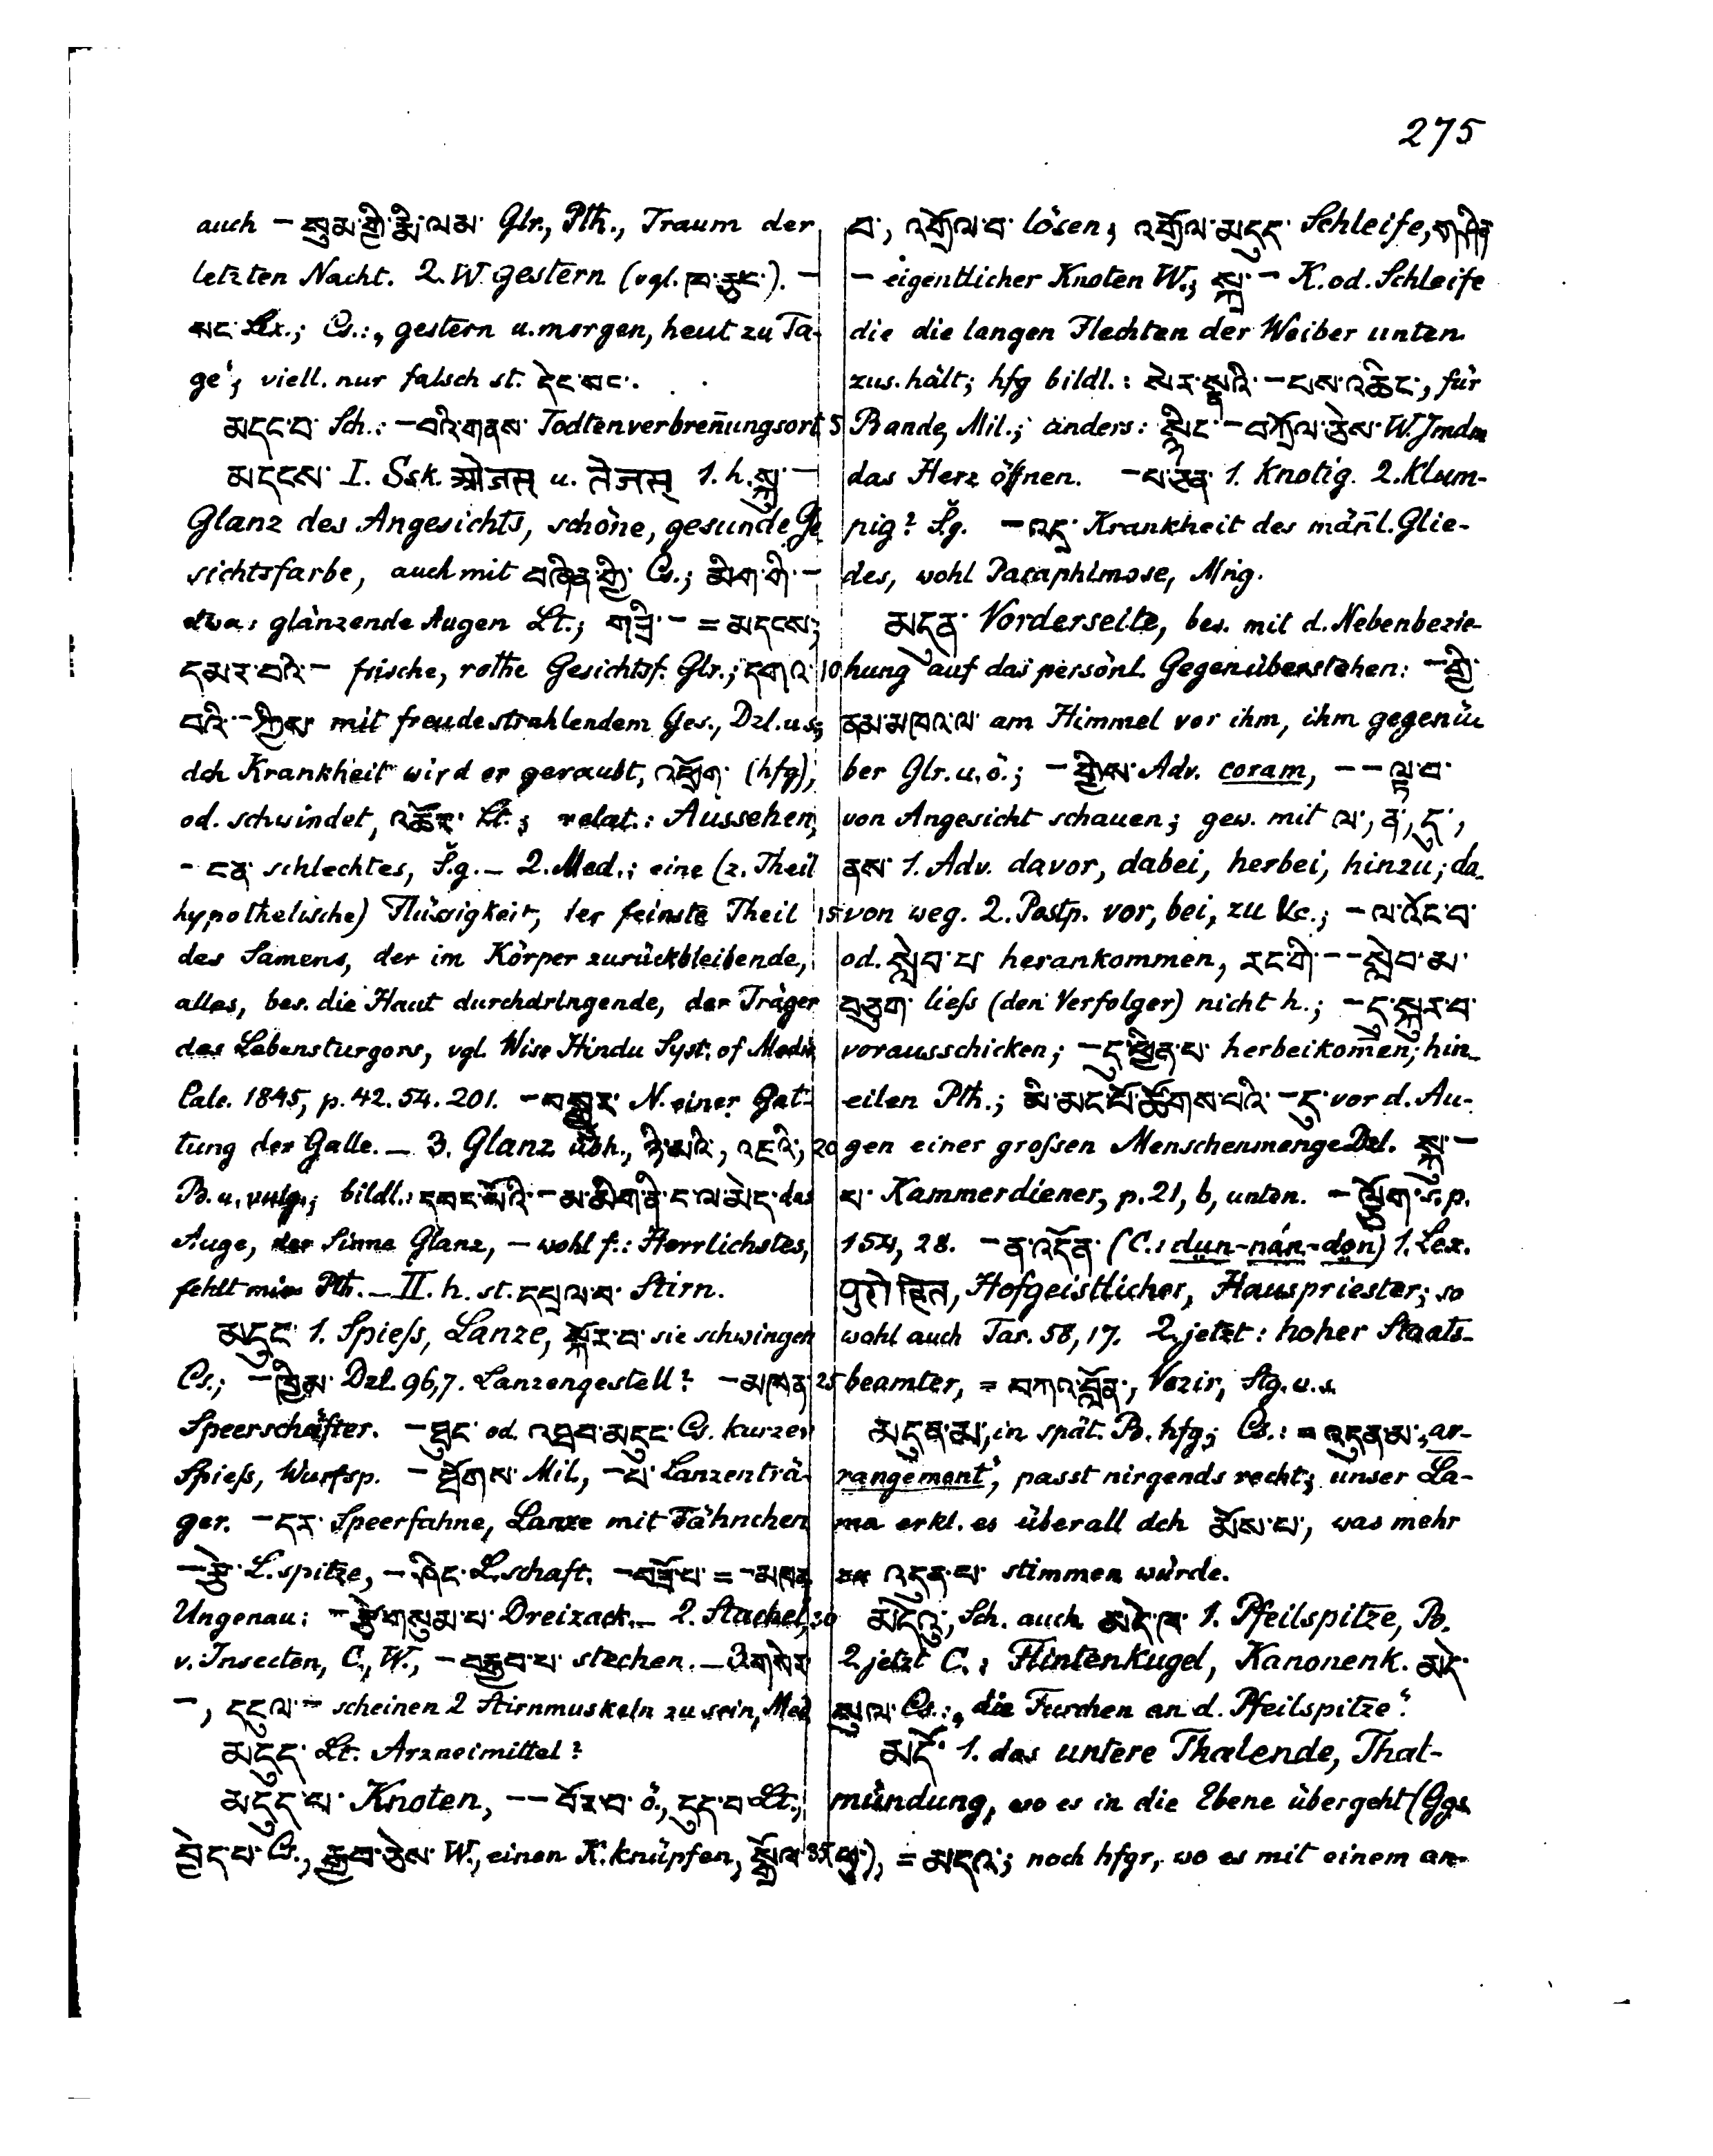 275
auch – སུམ་གྱི་རྨི་ལམ་ Glr., Pth., Traum der
letzten Nacht. 2. W. gestern (vgl. ཁ་རྩང་). –
སང་ Lex.; Cs.: „gestern u. morgen, heut zu Ta-
ge‘, viell. nur falsch st. དེང་སང་.
མདང་བ་ Sch.: – བའི་གནས་ Todtenverbreñungsort
མདངས་ I. Ssk. ओजस् u. तेजस् 1. h. སྐུ་ –
Glanz des Angesichts, schöne, gesunde Ge
sichtsfarbe, auch mit བཞིན་གྱི་ Cs.; མིག་གི་ –
etwa: glänzende Augen Lt.; གཟི་ – = མདངས;
དམར་བའི་ – frische, rothe Gesichtsf. Glr.; དགའ་
བའི་ – ཀྱིས་ mit freudestrahlendem Ges., Dzl. u.s;
dch Krankheit wird er geraubt, འཕྲོག་ (hfg),
od. schwindet, འཆོར་ Lt.; relat.: Aussehen,
– ངན་ schlechtes, S̆.g. – 2. Med.: eine (z. Theil
hypothetische) Flüssigkeit, der feinste Theil
des Samens, der im Körper zurückbleibende,
alles, bes. die Haut durchdringende, der Träger
des Lebensturgors, vgl. Wise Hindu Syst. of Medic
Calc. 1845, p. 42. 54. 201. – བསྒྱུར་ N. einer Gat-
tung der Galle. – 3. Glanz übh., ཉི་མའི་, འཇའི་,
B. u. vulg.; bildl.: དབང་པོའི་ – མ་མིག་ནི་ང་ལ་མེད་ das
Auge, der Sinne Glanz, – wohl f.: Herrlichstes,
fehlt mir Pth. – II. h. st. དཔྲལ་བ་ Stirn.
མདུང་ 1. Spieſs, Lanze, སྐོར་བ་ sie schwingen
Cs.; – ཁྲིམ་ Dzl. 96, 7. Lanzengestell? – མཁན་
Speerschäfter. – ཐུང་ od. འཐབ་མདུང་ Cs. kurzer
Spieſs, Wurfsp. – ཐོགས་ Mil., – པ་ Lanzenträ-
ger. – དར་ Speerfahne, Lanze mit Fähnchen
– རྩེ་ L.spitze, – ཤིང་ L.schaft. – བཟོ་པ་ = – མཁན
Ungenau: – རྩེ་གསུམ་པ་ Dreizack. – 2. Stachel,
v. Insecten, C., W., – བརྒྱབ་པ་ stechen. – 3. གསེར
–, དངུལ་ – scheinen 2 Stirnmuskeln zu sein, Med
མདུད་ Lt. Arzneimittel?
མདུད་པ་ Knoten, – – བོར་བ་ ö., དུད་བ་ Lt.,
བྱེད་པ་ Cs., རྒྱབ་ཅེས་ W., einen K. knüpfen, སྒྲོལ་
བ་, འགྲོལ་བ་ lösen; འགྲོལ་མདུད་ Schleife,
– eigentlicher Knoten W.; སྐྲ་ – K. od. Schleife
die die langen Flechten der Weiber unten
zus. hält; hfg bildl.: སེར་སྣའི་ – པས་འཆིང་, für
5 Bande, Mil.; anders: སྙིང་ – བཀྲོལ་ཅེས་ W. Jmdm
das Herz öffnen. – པ་ཅན་ 1. knotig. 2. klum-
pig? S̆.g. – འདྲ་ Krankheit des mäñl. Glie-
des, wohl Paraphimose, Mng.
མདུན་ Vorderseite, bes. mit d. Nebenbezie-
10 hung auf das persönl. Gegenüberstehen: – གྱི་
ནམ་མཁའ་ལ་ am Himmel vor ihm, ihm gegenü
ber Glr. u. ö.; – གྱིས་ Adv. coram, – – ལྟ་བ་
von Angesicht schauen; gew. mit ལ་, ན་, དུ་,
ནས་ 1. Adv. davor, dabei, herbei, hinzu; da-
15 von weg. 2. Postp. vor, bei, zu &c.; – ལ་འོང་བ་
od. སླེབ་པ་ herankommen, རང་གི་ – – སླེབ་མ་
བཅུག་ lieſs (den Verfolger) nicht h.; – དུ་སྐུར་བ་
vorausschicken; – དུ་ཕྱིན་པ་ herbeikom̃en; hin-
eilen Pth.; མི་མང་པོ་ཚོགས་པའི་ – དུ་ vor d. Au-
20 gen einer groſsen Menschenmenge Dzl. སྐུ་ –
པ་ Kammerdiener, p. 21, b, unten. – ལྕོག་ s. p.
154, 28. – ན་འདོན་ (C.: dụn-nán-dọn) 1. Lex.
पुरोहित, Hofgeistlicher, Hauspriester; so
wohl auch Tar. 58, 17. 2. jetzt: hoher Staats-
25 beamter, = བཀའ་བློན་, Vezir, Stg. u. s.
མདུན་མ་, in spät. B. hfg; Cs.: = འདུན་མ་ „ar-
rangement‘, passt nirgends recht; unser La-
ma erkl. es überall dch མོས་པ་, was mehr
zu འདུན་པ་ stimmen würde.
30 མདེའུ་, Sch. auch མདེ་ཁ་ 1. Pfeilspitze, B.
2. jetzt C.: Flintenkugel, Kanonenk. མདེ་
སུལ་ Cs.: „die Furchen an d. Pfeilspitze‘.
མདོ་ 1. das untere Thalende, Thal-
mündung, wo es in die Ebene übergeht (Ggs
35 ཕུ་), = མདའ་; noch hfgr, wo es mit einem an-